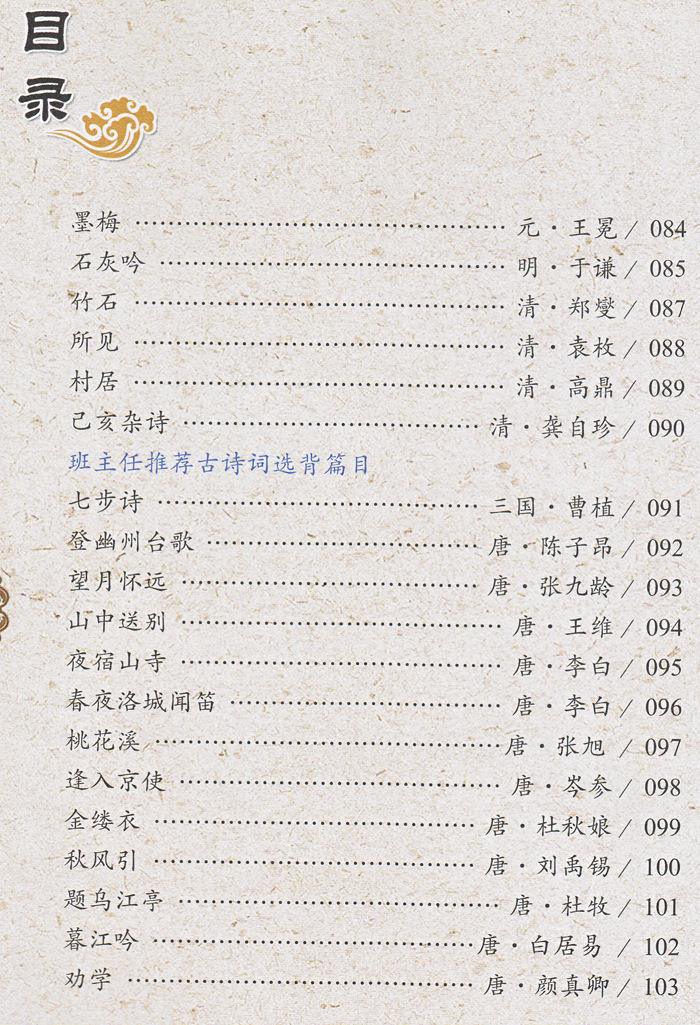 目录
墨梅 ………………………………… 元·王冕 / 084
石灰吟 ………………………………… 明·于谦 / 085
竹石 ………………………………… 清·郑燮 / 087
所见 ………………………………… 清·袁枚 / 088
村居 ………………………………… 清·高鼎 / 089
己亥杂诗 ………………………………… 清·龚自珍 / 090
班主任推荐古诗词选背篇目
七步诗 ………………………………… 三国·曹植 / 091
登幽州台歌 ………………………………… 唐·陈子昂 / 092
望月怀远 ………………………………… 唐·张九龄 / 093
山中送别 ………………………………… 唐·王维 / 094
夜宿山寺 ………………………………… 唐·李白 / 095
春夜洛城闻笛 ………………………………… 唐·李白 / 096
桃花溪 ………………………………… 唐·张旭 / 097
逢入京使 ………………………………… 唐·岑参 / 098
金缕衣 ………………………………… 唐·杜秋娘 / 099
秋风引 ………………………………… 唐·刘禹锡 / 100
题乌江亭 ………………………………… 唐·杜牧 / 101
暮江吟 ………………………………… 唐·白居易 / 102
劝学 ………………………………… 唐·颜真卿 / 103